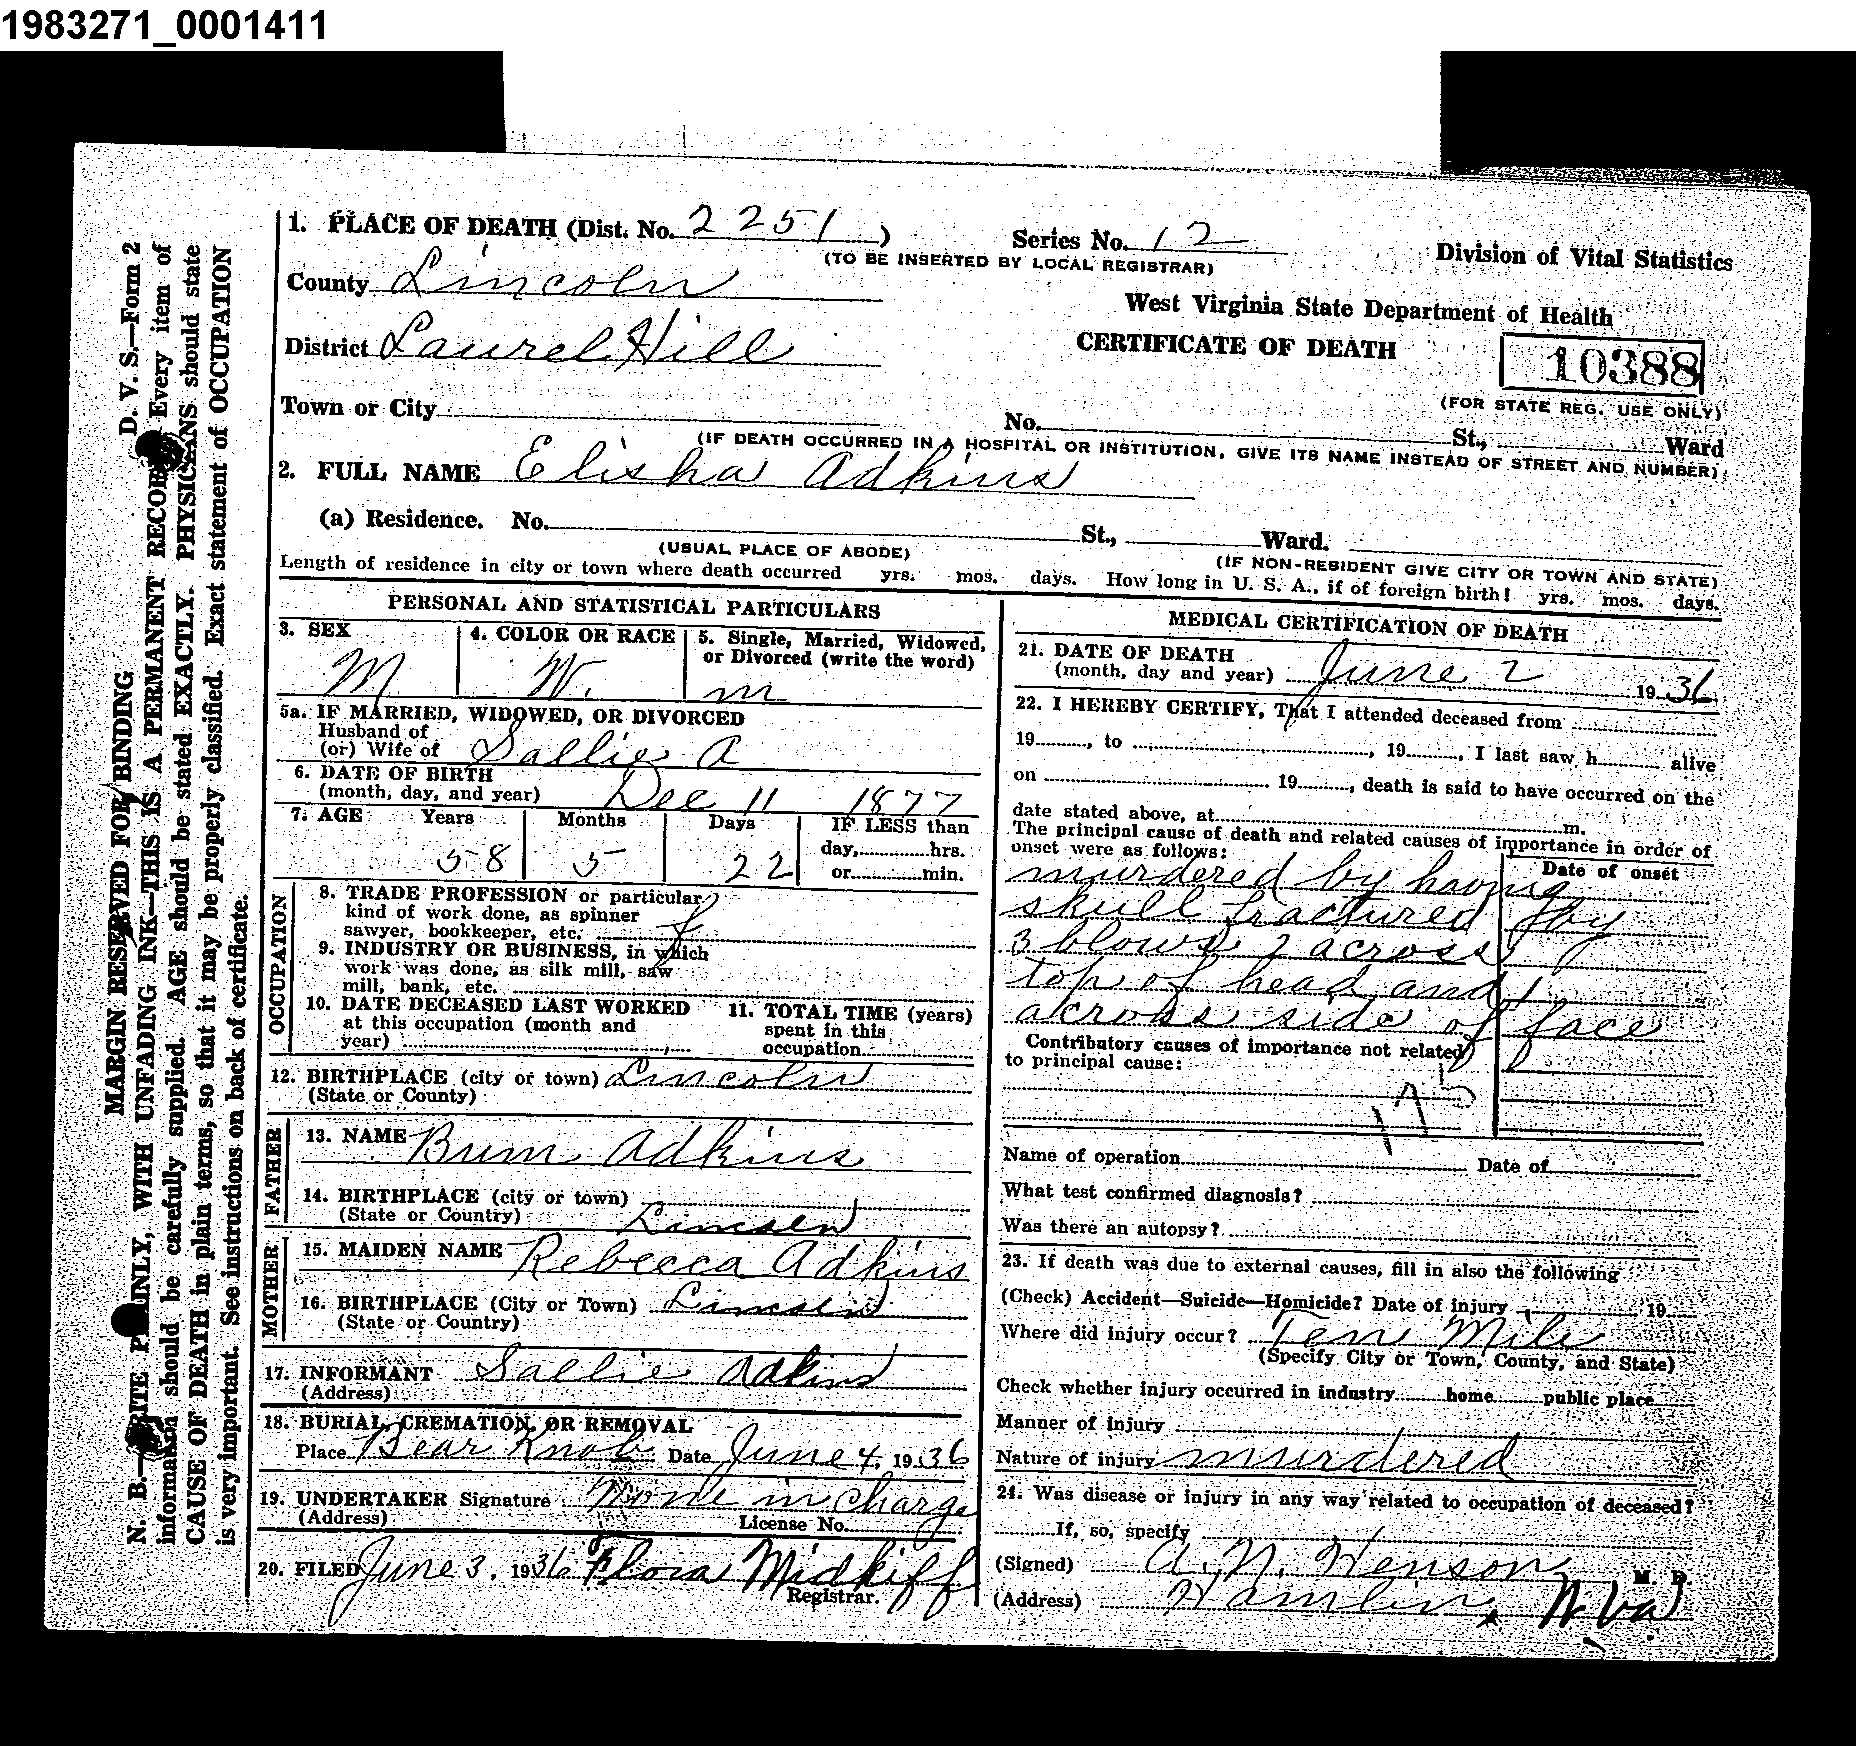 1983271_0001411
D. V. S.—Form 2
MARGIN RESERVED FOR BINDING
N. B.—WRITE PLAINLY, WITH UNFADING INK—THIS IS A PERMANENT RECORD. Every item of
information should be carefully supplied. AGE should be stated EXACTLY. PHYSICIANS should state
CAUSE OF DEATH in plain terms, so that it may be properly classified. Exact statement of OCCUPATION
is very important. See instructions on back of certificate.
1. PLACE OF DEATH (Dist. No. 2251)
Series No. 12
(TO BE INSERTED BY LOCAL REGISTRAR)
Division of Vital Statistics
County Lincoln
West Virginia State Department of Health
District Laurel Hill
CERTIFICATE OF DEATH
10388
(FOR STATE REG. USE ONLY)
Town or City
No. St., Ward
(IF DEATH OCCURRED IN A HOSPITAL OR INSTITUTION, GIVE ITS NAME INSTEAD OF STREET AND NUMBER)
2. FULL NAME Elisha Adkins
(a) Residence. No. St., Ward.
(USUAL PLACE OF ABODE)
(IF NON-RESIDENT GIVE CITY OR TOWN AND STATE)
Length of residence in city or town where death occurred yrs. mos. days. How long in U. S. A., if of foreign birth! yrs. mos. days.
PERSONAL AND STATISTICAL PARTICULARS
3. SEX
M
4. COLOR OR RACE
W.
5. Single, Married, Widowed,
or Divorced (write the word)
m
5a. IF MARRIED, WIDOWED, OR DIVORCED
Husband of
(or) Wife of Sallie A
6. DATE OF BIRTH
(month, day, and year) Dec 11 1877
7. AGE Years Months Days IF LESS than
58 5 22
day, hrs.
or min.
OCCUPATION
8. TRADE PROFESSION or particular
kind of work done, as spinner
sawyer, bookkeeper, etc. f
9. INDUSTRY OR BUSINESS, in which
work was done, as silk mill, saw
mill, bank, etc.
10. DATE DECEASED LAST WORKED
at this occupation (month and
year)
11. TOTAL TIME (years)
spent in this
occupation
12. BIRTHPLACE (city or town) Lincoln
(State or County)
FATHER
13. NAME Brum Adkins
14. BIRTHPLACE (city or town)
(State or Country) Lincoln
MOTHER
15. MAIDEN NAME Rebecca Adkins
16. BIRTHPLACE (City or Town) Lincoln
(State or Country)
17. INFORMANT Sallie Adkins
(Address)
18. BURIAL, CREMATION, OR REMOVAL
Place Bear Knob Date June 4, 1936
19. UNDERTAKER Signature None in charge
(Address)
License No.
20. FILED June 3, 1936 Flora Midkiff
Registrar.
MEDICAL CERTIFICATION OF DEATH
21. DATE OF DEATH
(month, day and year) June 2 1936
22. I HEREBY CERTIFY, That I attended deceased from
19 , to , 19 , I last saw h alive
on 19 , death is said to have occurred on the
date stated above, at m.
The principal cause of death and related causes of importance in order of
onset were as follows:
Date of onset
murdered by having
skull fractured by
3 blows 2 across
top of head and 1
across side of face
Contributory causes of importance not related
to principal cause:
175
Name of operation Date of
What test confirmed diagnosis?
Was there an autopsy?
23. If death was due to external causes, fill in also the following
(Check) Accident—Suicide—Homicide? Date of injury 19
Where did injury occur? Ten Mile
(Specify City or Town, County, and State)
Check whether injury occurred in industry home public place
Manner of injury
Nature of injury murdered
24. Was disease or injury in any way related to occupation of deceased?
If, so, specify
(Signed) A. N. Henson M. D.
(Address) Hamlin, W Va